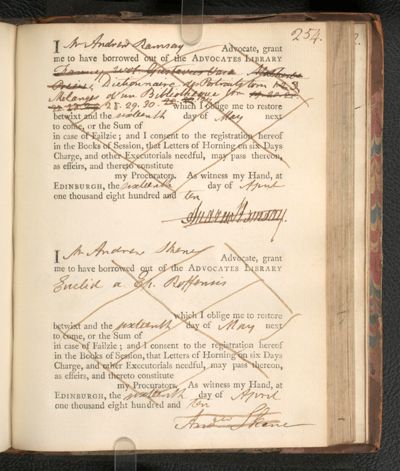 254.
I Mr Andrew Ramsay Advocate, grant
me to have borrowed out of the ADVOCATES LIBRARY
Gustavus Vasa
Dictionnaire de
Melanges d'un Bibliotheque
28. 29. 30. which I oblige me to restore
betwixt and the sixteenth day of May next
to come, or the Sum of
in case of Failzie; and I consent to the registration hereof
in the Books of Session, that Letters of Horning on six Days
Charge, and other Executorials needful, may pass thereon,
as effeirs, and thereto constitute
my Procurators. As witness my Hand, at
EDINBURGH, the sixteenth day of April
one thousand eight hundred and ten
Andrew Ramsay.
I Mr Andrew Skene Advocate, grant
me to have borrowed out of the ADVOCATES LIBRARY
Euclid a Ep. Roffensis
which I oblige me to restore
betwixt and the sixteenth day of May next
to come, or the Sum of
in case of Failzie; and I consent to the registration hereof
in the Books of Session, that Letters of Horning on six Days
Charge, and other Executorials needful, may pass thereon,
as effeirs, and thereto constitute
my Procurators. As witness my Hand, at
EDINBURGH, the sixteenth day of April
one thousand eight hundred and ten
Andw Skene